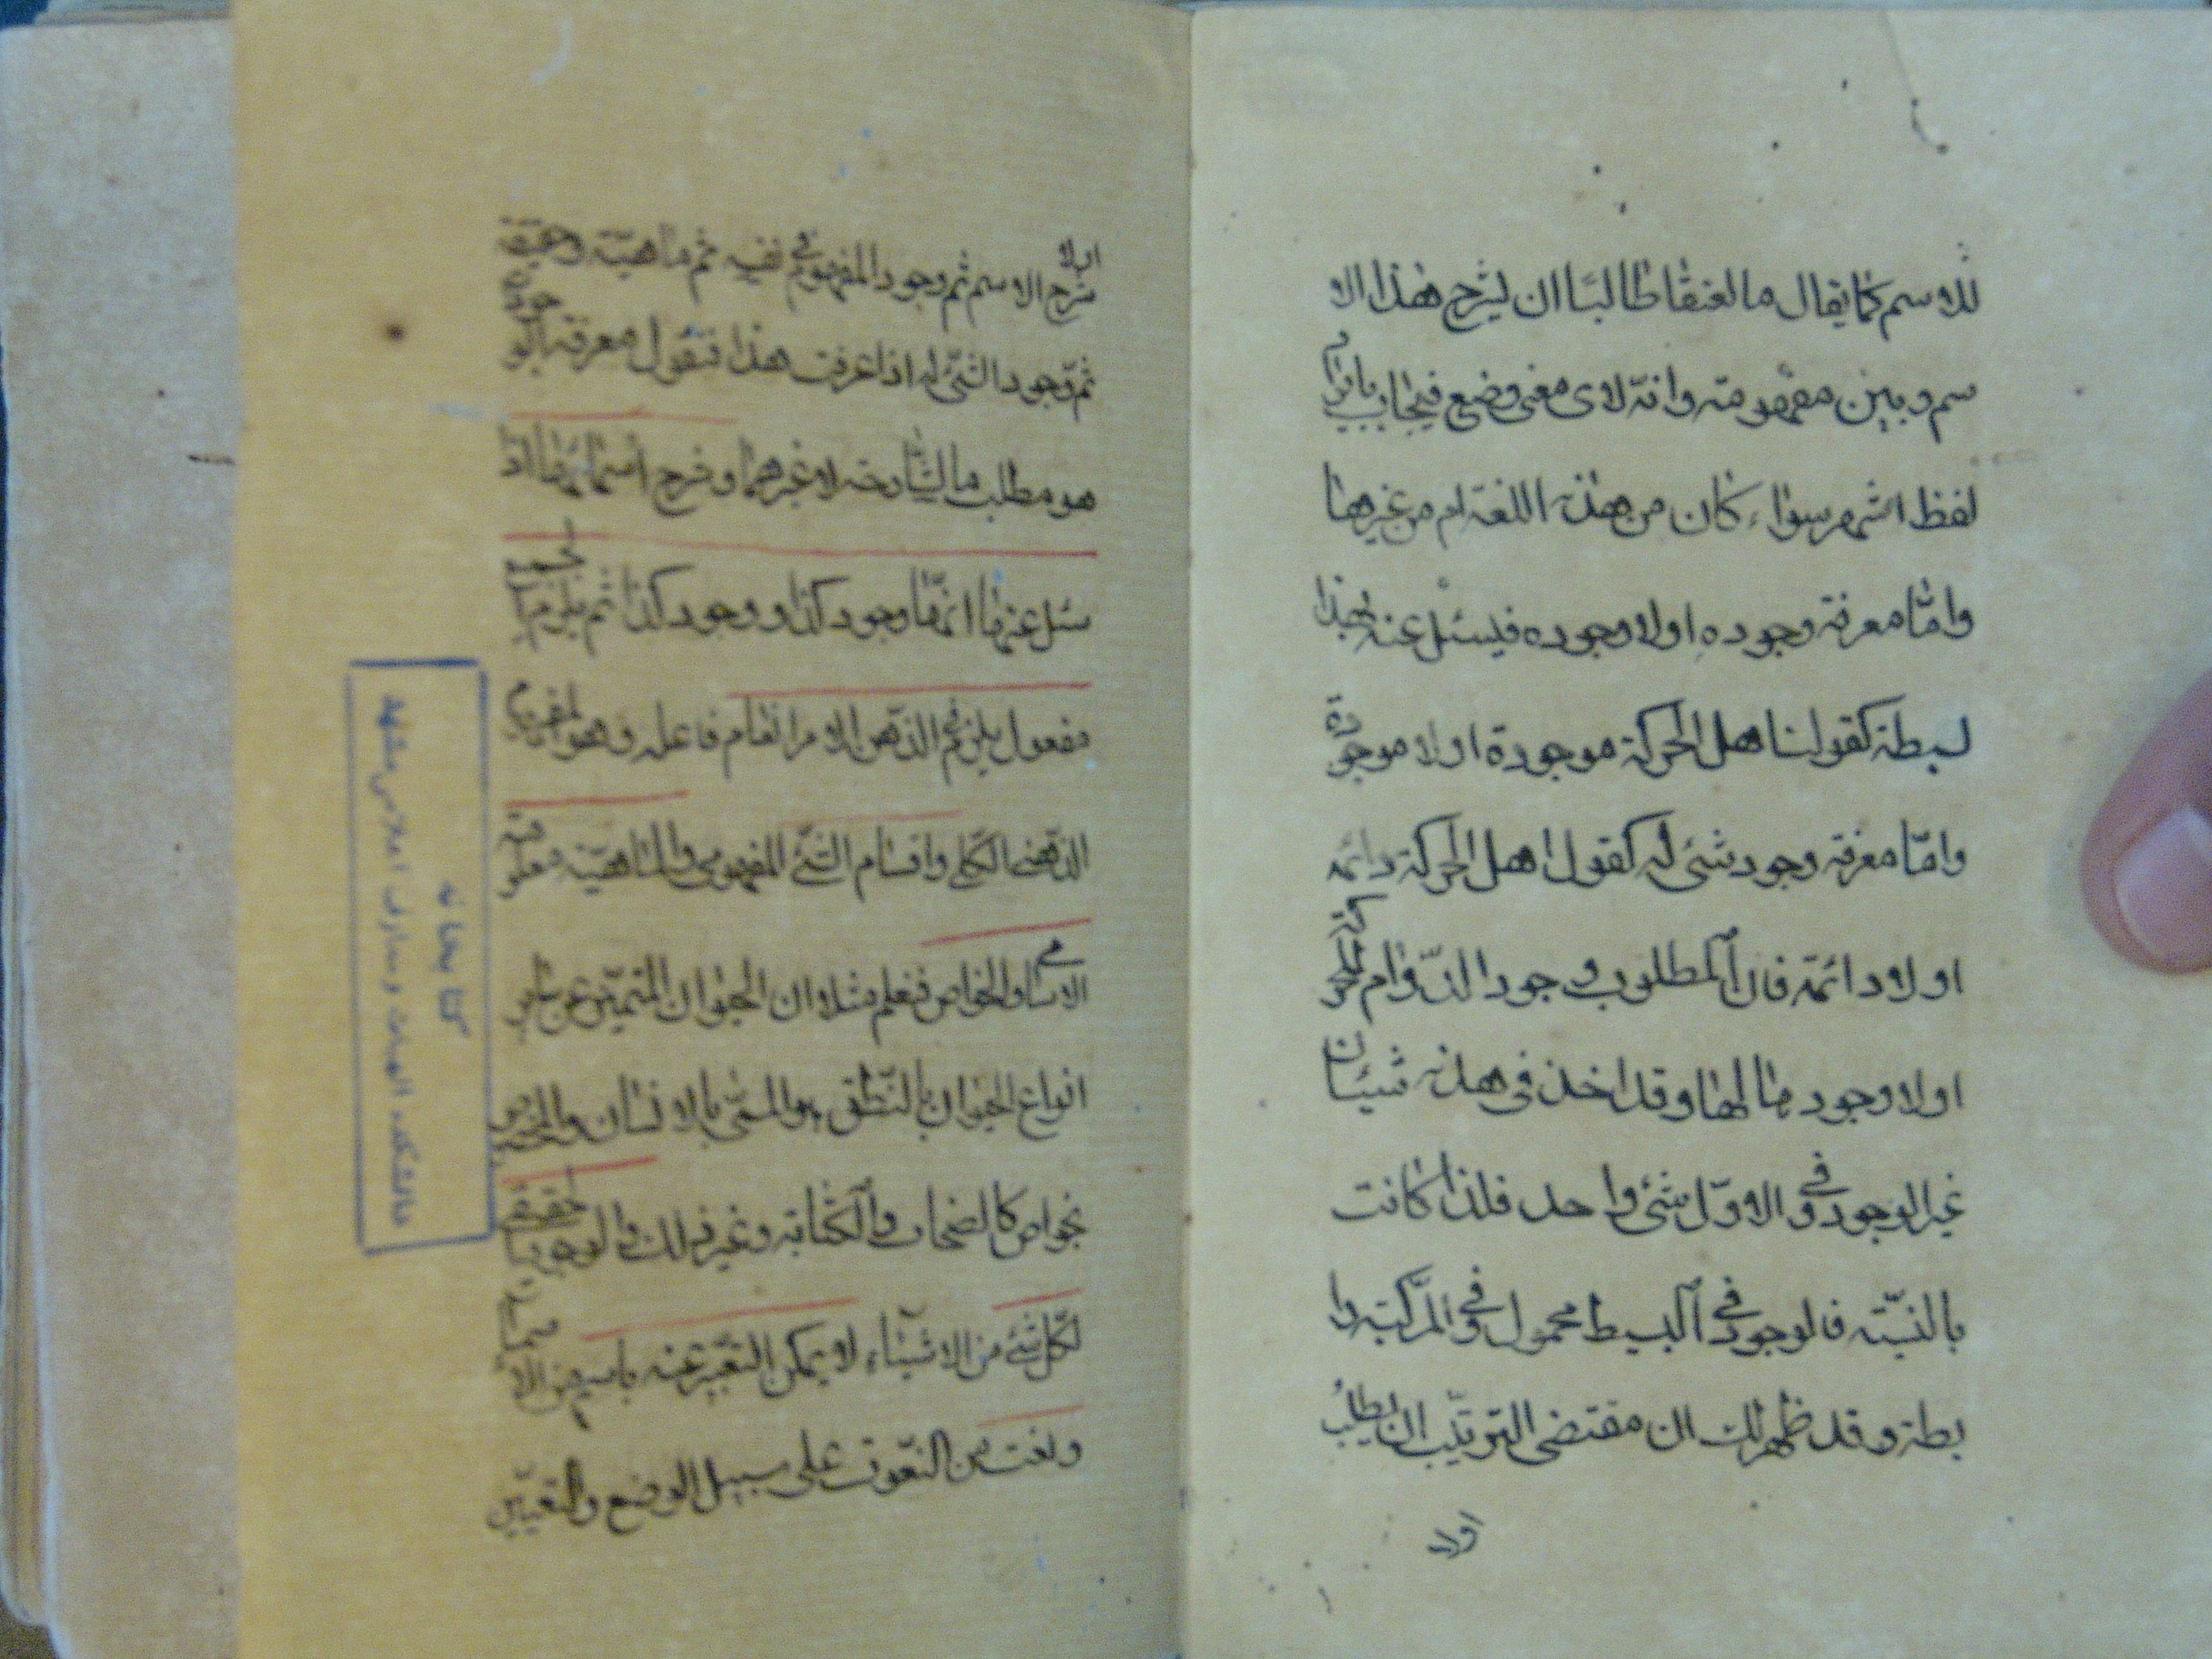 للاسم كما يقال ما العنقا طالبا ان يشرح هذا الا
سم و يبين مفهومه وانه لاى معنى وضع فيجاب بايراد
لفظ اشهر سواء كان من هذه اللغة ام من غيرها
واما معرفة وجوده اولا وجوده فيسئل عنه بهذا
بسيطة كقولنا هل الحركة موجودة اولا موجودة
واما معرفة وجود شئ له كقولنا هل الحركة دائمه
اولا دائمة فان المطلوب وجود الدوام للحركة
اولا وجود ما لها وقد اخذ فى هذه شيئان
غير الوجود وفى الاول شئ واحد فلذا كانت
بالنسبة فالوجود فى البسيط محمول وفى المركبة را
بطة وقد ظهر لك ان مقتضى الترتيب ان يطلب
اولا
اولا
شرح الاسم ثم وجود المفهوم فى نفسه ثم ماهيته وحقيقته
ثم وجود الشئ له اذا عرفت هذا فنقول معرفة الوجود
هو مطلب ما الشارحة لا غيرهما وشرح اسمائهما اذا
سئل عنهما انهما وجود كذا و وجود كذا ثم
مفعول يلزم فى الذهن الامر القام فاعله وهو المفهوم
الذهنى الكلى واقسام الشئ المفهومى والماهية معلومة
الاسامى والخواص فنعلم مثلا ان الحيوان المتميز عن ساير
انواع الحيوان بالنطق هو المسمى بالانسان والمخصوص
بخواص كالضحك والكتابة وغير ذلك والوجود حقيقة
لكل شئ من الاشياء لا يمكن التعبير عنه باسم من الاسماء
ونعت من النعوت على سبيل الوضع والتعيين
كتابخانه
دانشكده الهيات و معارف اسلامى مشهد